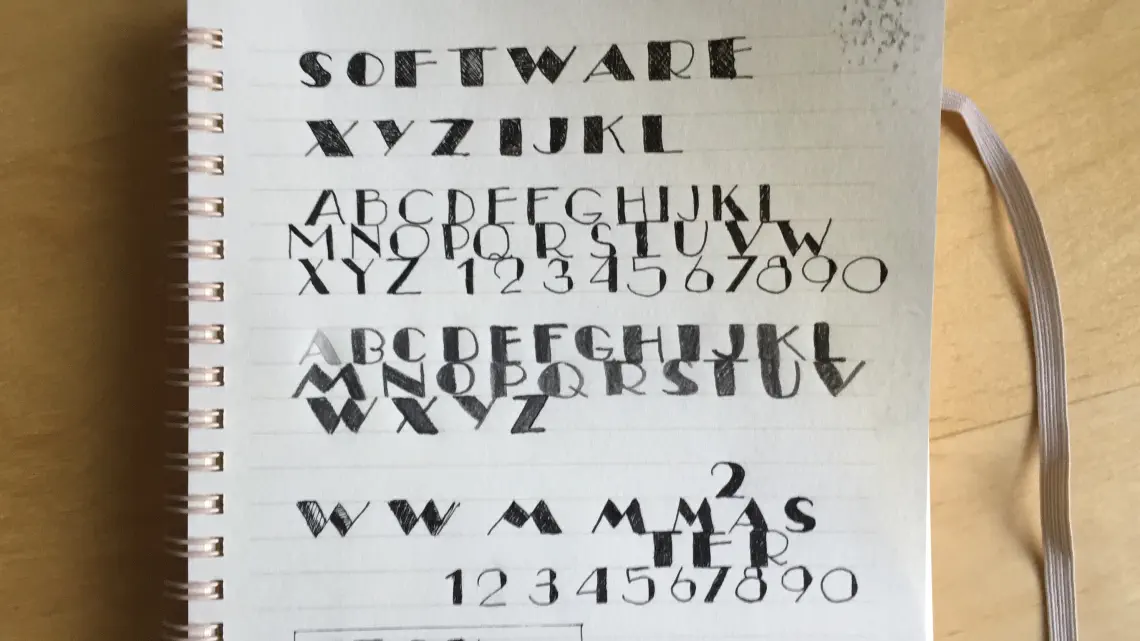 SOFTWARE
XYZIJKL
ABCDEFGHIJKL
MNOPQRSTUVW
XYZ 1234567890
ABCDEFGHIJKL
MNOPQRSTUV
WXYZ
2
W W M M M A S
T E R
1234567890